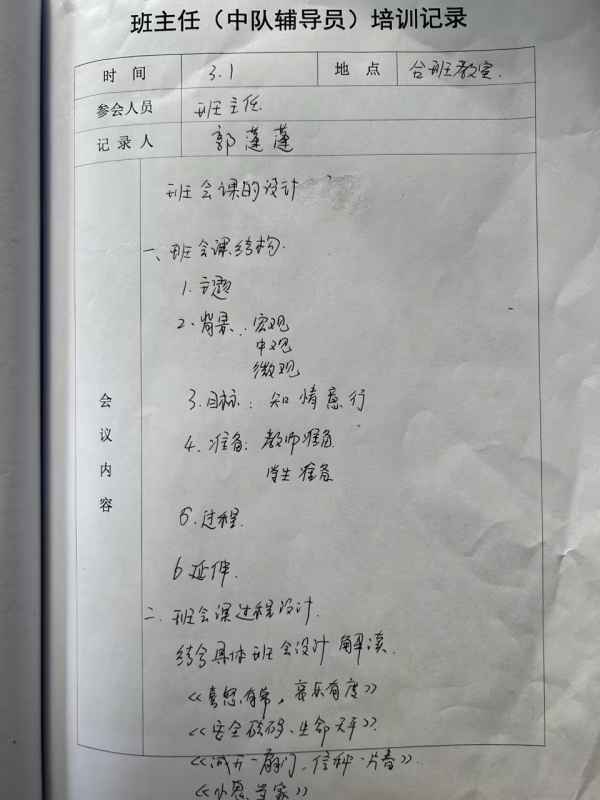 班主任（中队辅导员）培训记录
时间 3.1 地点 合班教室.
参会人员 班主任
记录人 郭蓬蓬
会议内容
班会课的设计
一、班会课结构.
1. 主题
2. 背景：宏观
中观
微观
3. 目标：知情意行
4. 准备：教师准备
学生准备
5. 过程.
6 延伸.
二. 班会课过程设计.
结合具体班会设计解读.
《喜怒有常，哀乐有度》
《安全砝码、生命天平》
《打开一扇门、信种一片春》.
《小鬼当家》